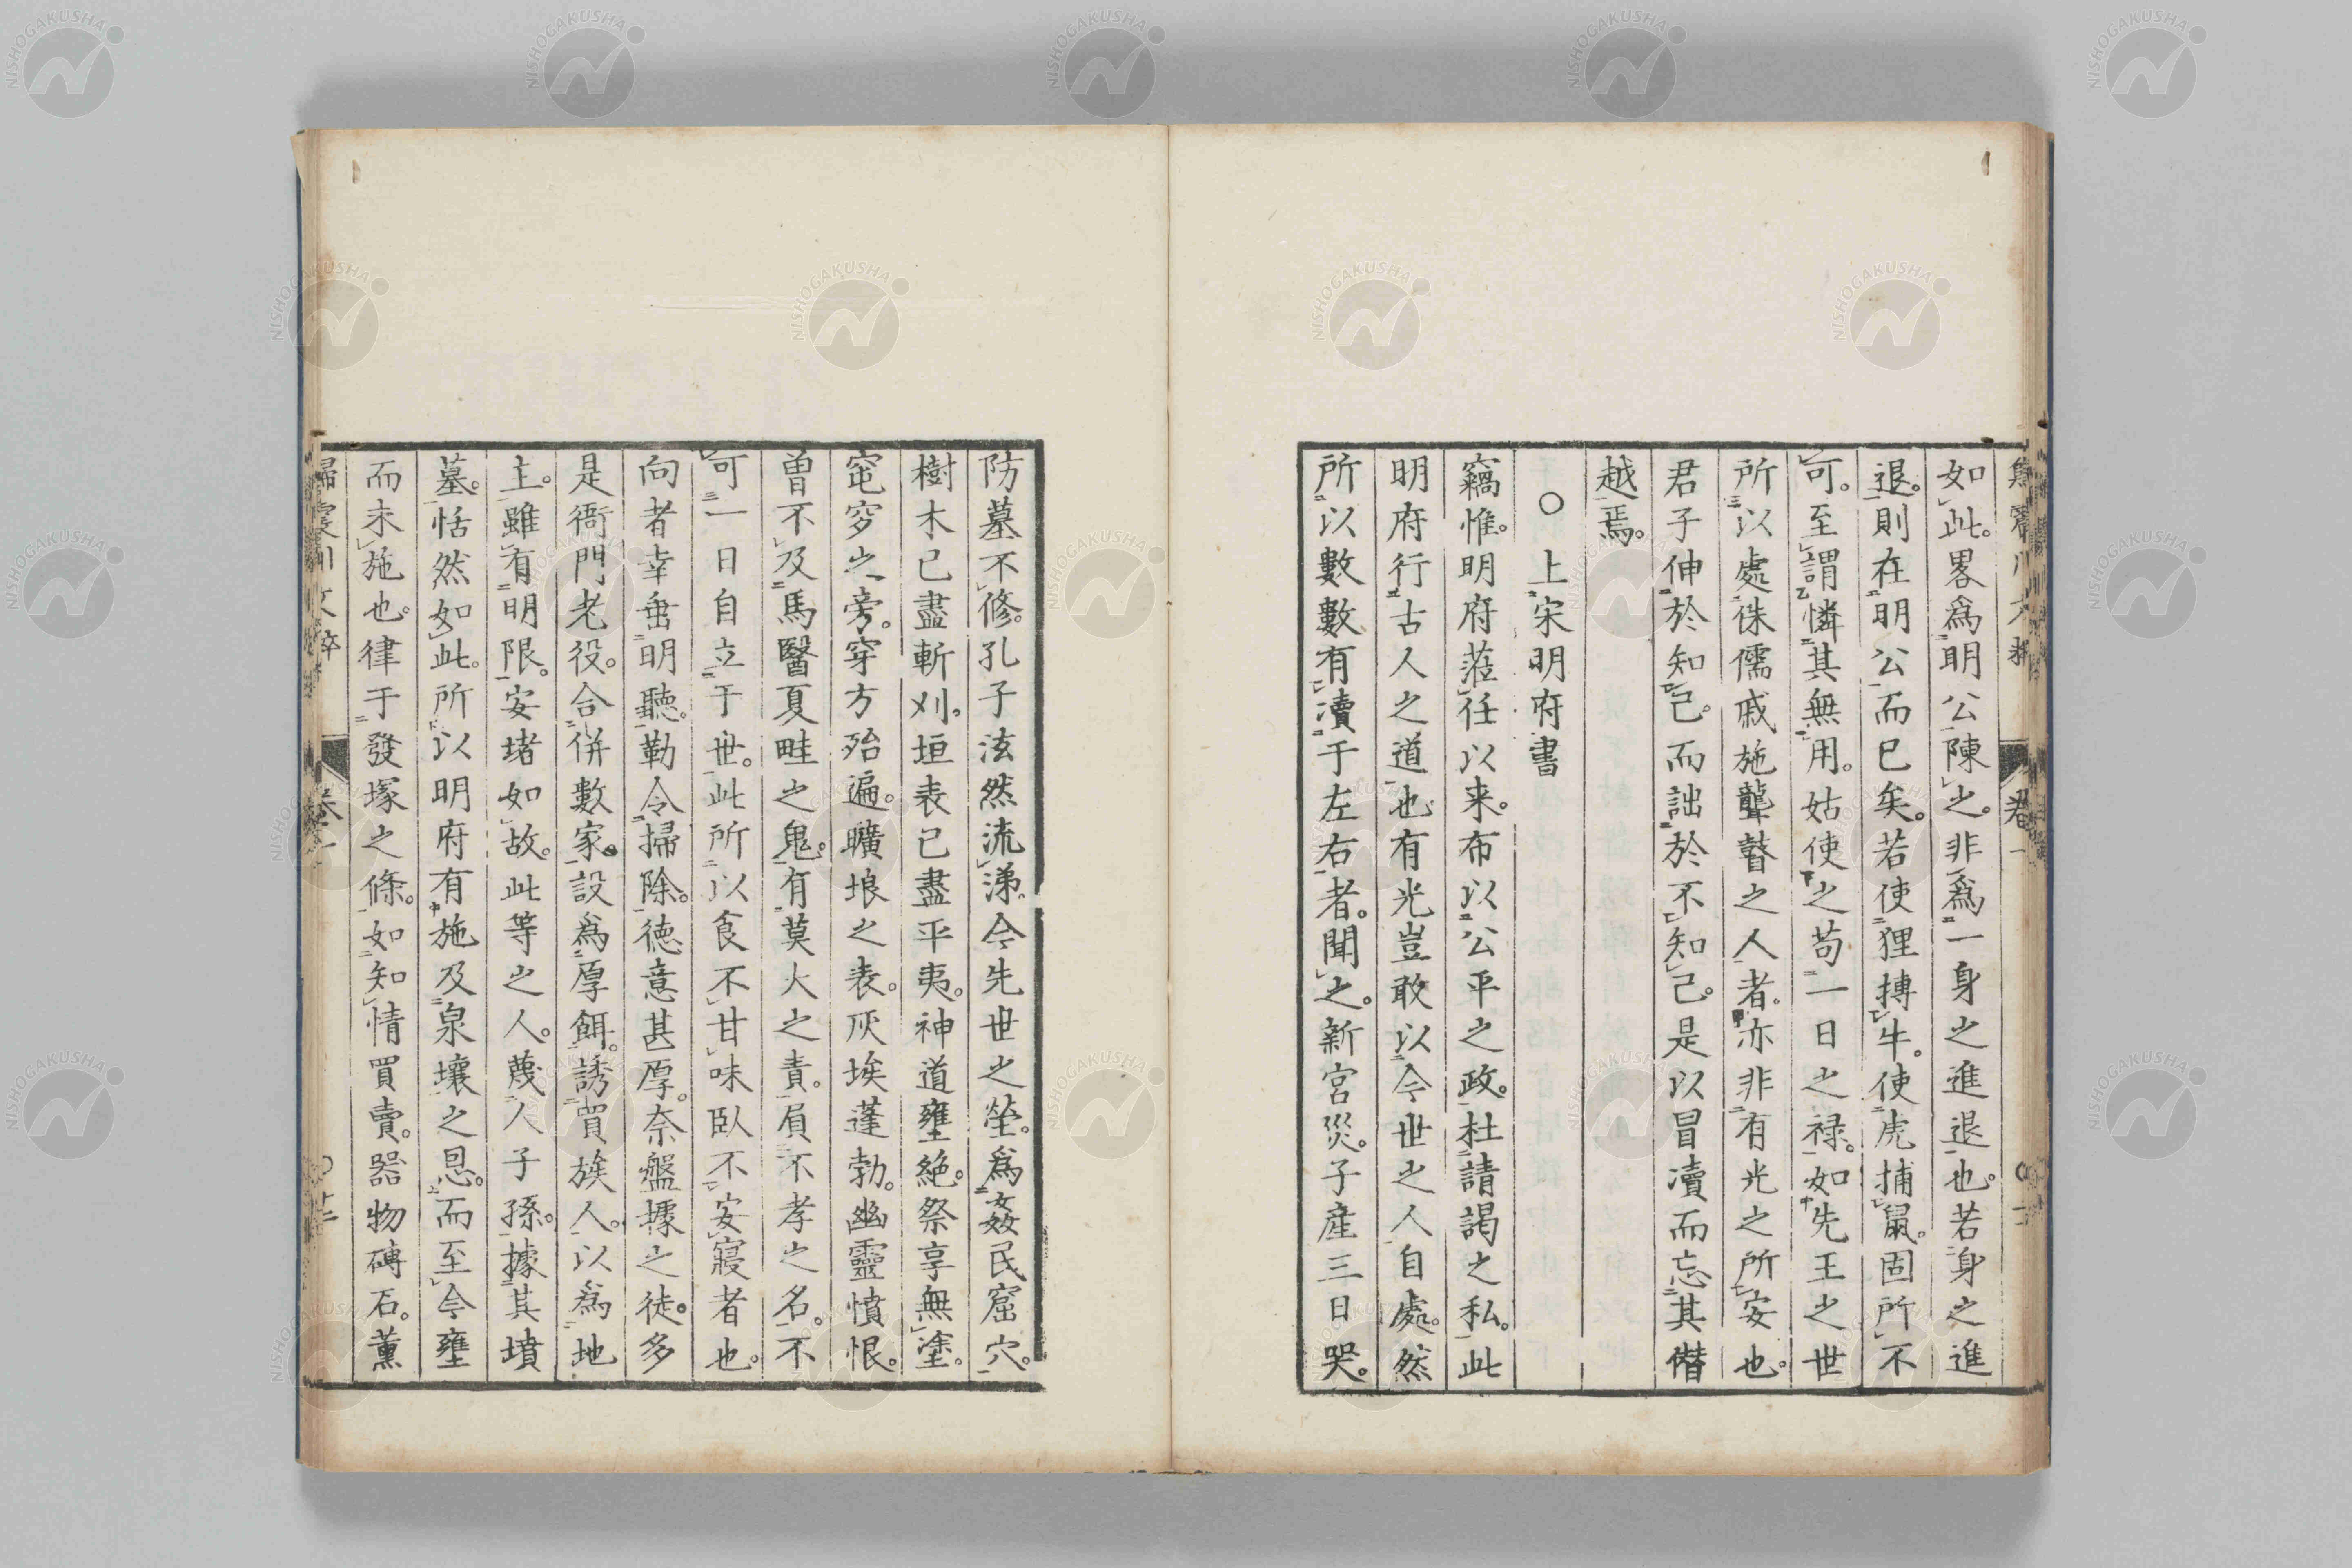 如此。畧爲明公陳之。非爲一身之進退也。若身之進
退。則在明公而已矣。若使狸搏牛。使虎捕鼠。固所不
可。至謂憐其無用。姑使之苟一日之禄。如先王之世
所以處侏儒戚施聾瞽之人者。亦非有光之所安也。
君子伸於知己。而詘於不知己。是以冒瀆而忘其僭
越焉。
○上宋明府書
竊惟。明府蒞任以来。布以公平之政。杜請謁之私。此
明府行古人之道也有光豈敢以今世之人自處。然
所以數數有瀆于左右者。聞之。新宮災。子産三日哭。
防墓不修。孔子泫然流涕。今先世之塋。爲姦民窟穴。
樹木已盡斬刈。垣表已盡平夷。神道壅絶。祭享無塗。
窀穸之旁。穿方殆遍。曠埌之表。灰埃蓬勃。幽靈憤恨。
曽不及馬醫夏畦之鬼。有莫大之責。屓不孝之名。不
可一日自立于世。此所以食不甘味臥不安寢者也。
向者幸垂明聽。勒令掃除。德意甚厚。奈盤據之徒。多
是衙門老役。合併數家。設爲厚餌。誘買族人。以爲地
主。雖有明限。安堵如故。此等之人。蔑人子孫。據其墳
墓。恬然如此。所以明府有施及泉壤之恩。而至今壅
而未施也。律于發塚之條。如知情買賣。器物磚石。薰
歸震川文粹 卷一